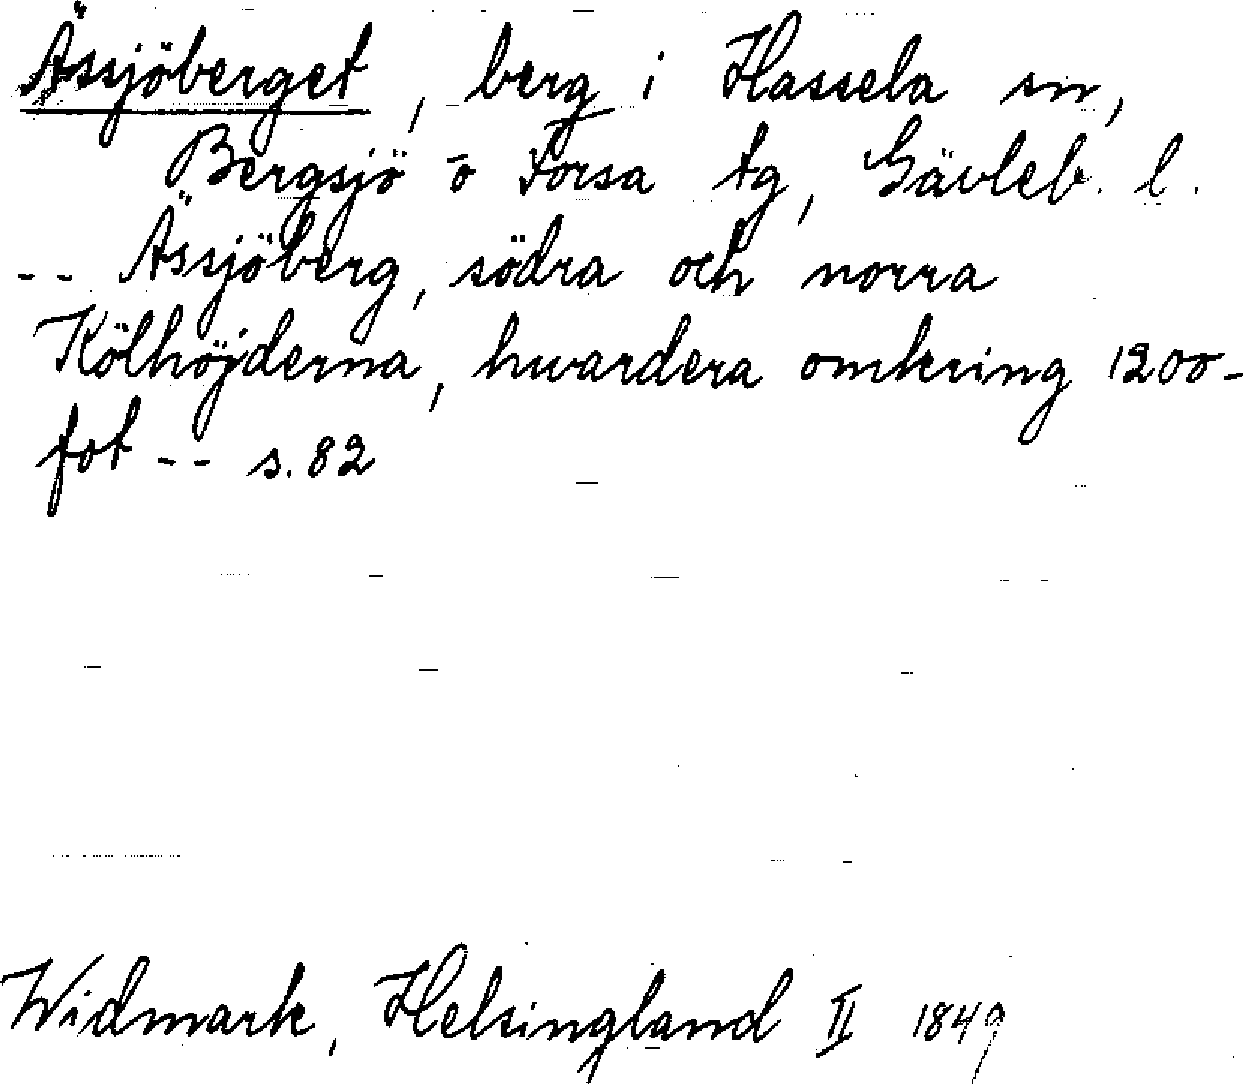 Ässjöberget, berg i Hassela sn,
Bergsjö o Forsa tg, Gävleb. l.
-- Ässjöberg, södra och norra
Kölhöjderna, hvardera omkring 1200-
fot -- s. 82
Widmark, Helsingland II 1849